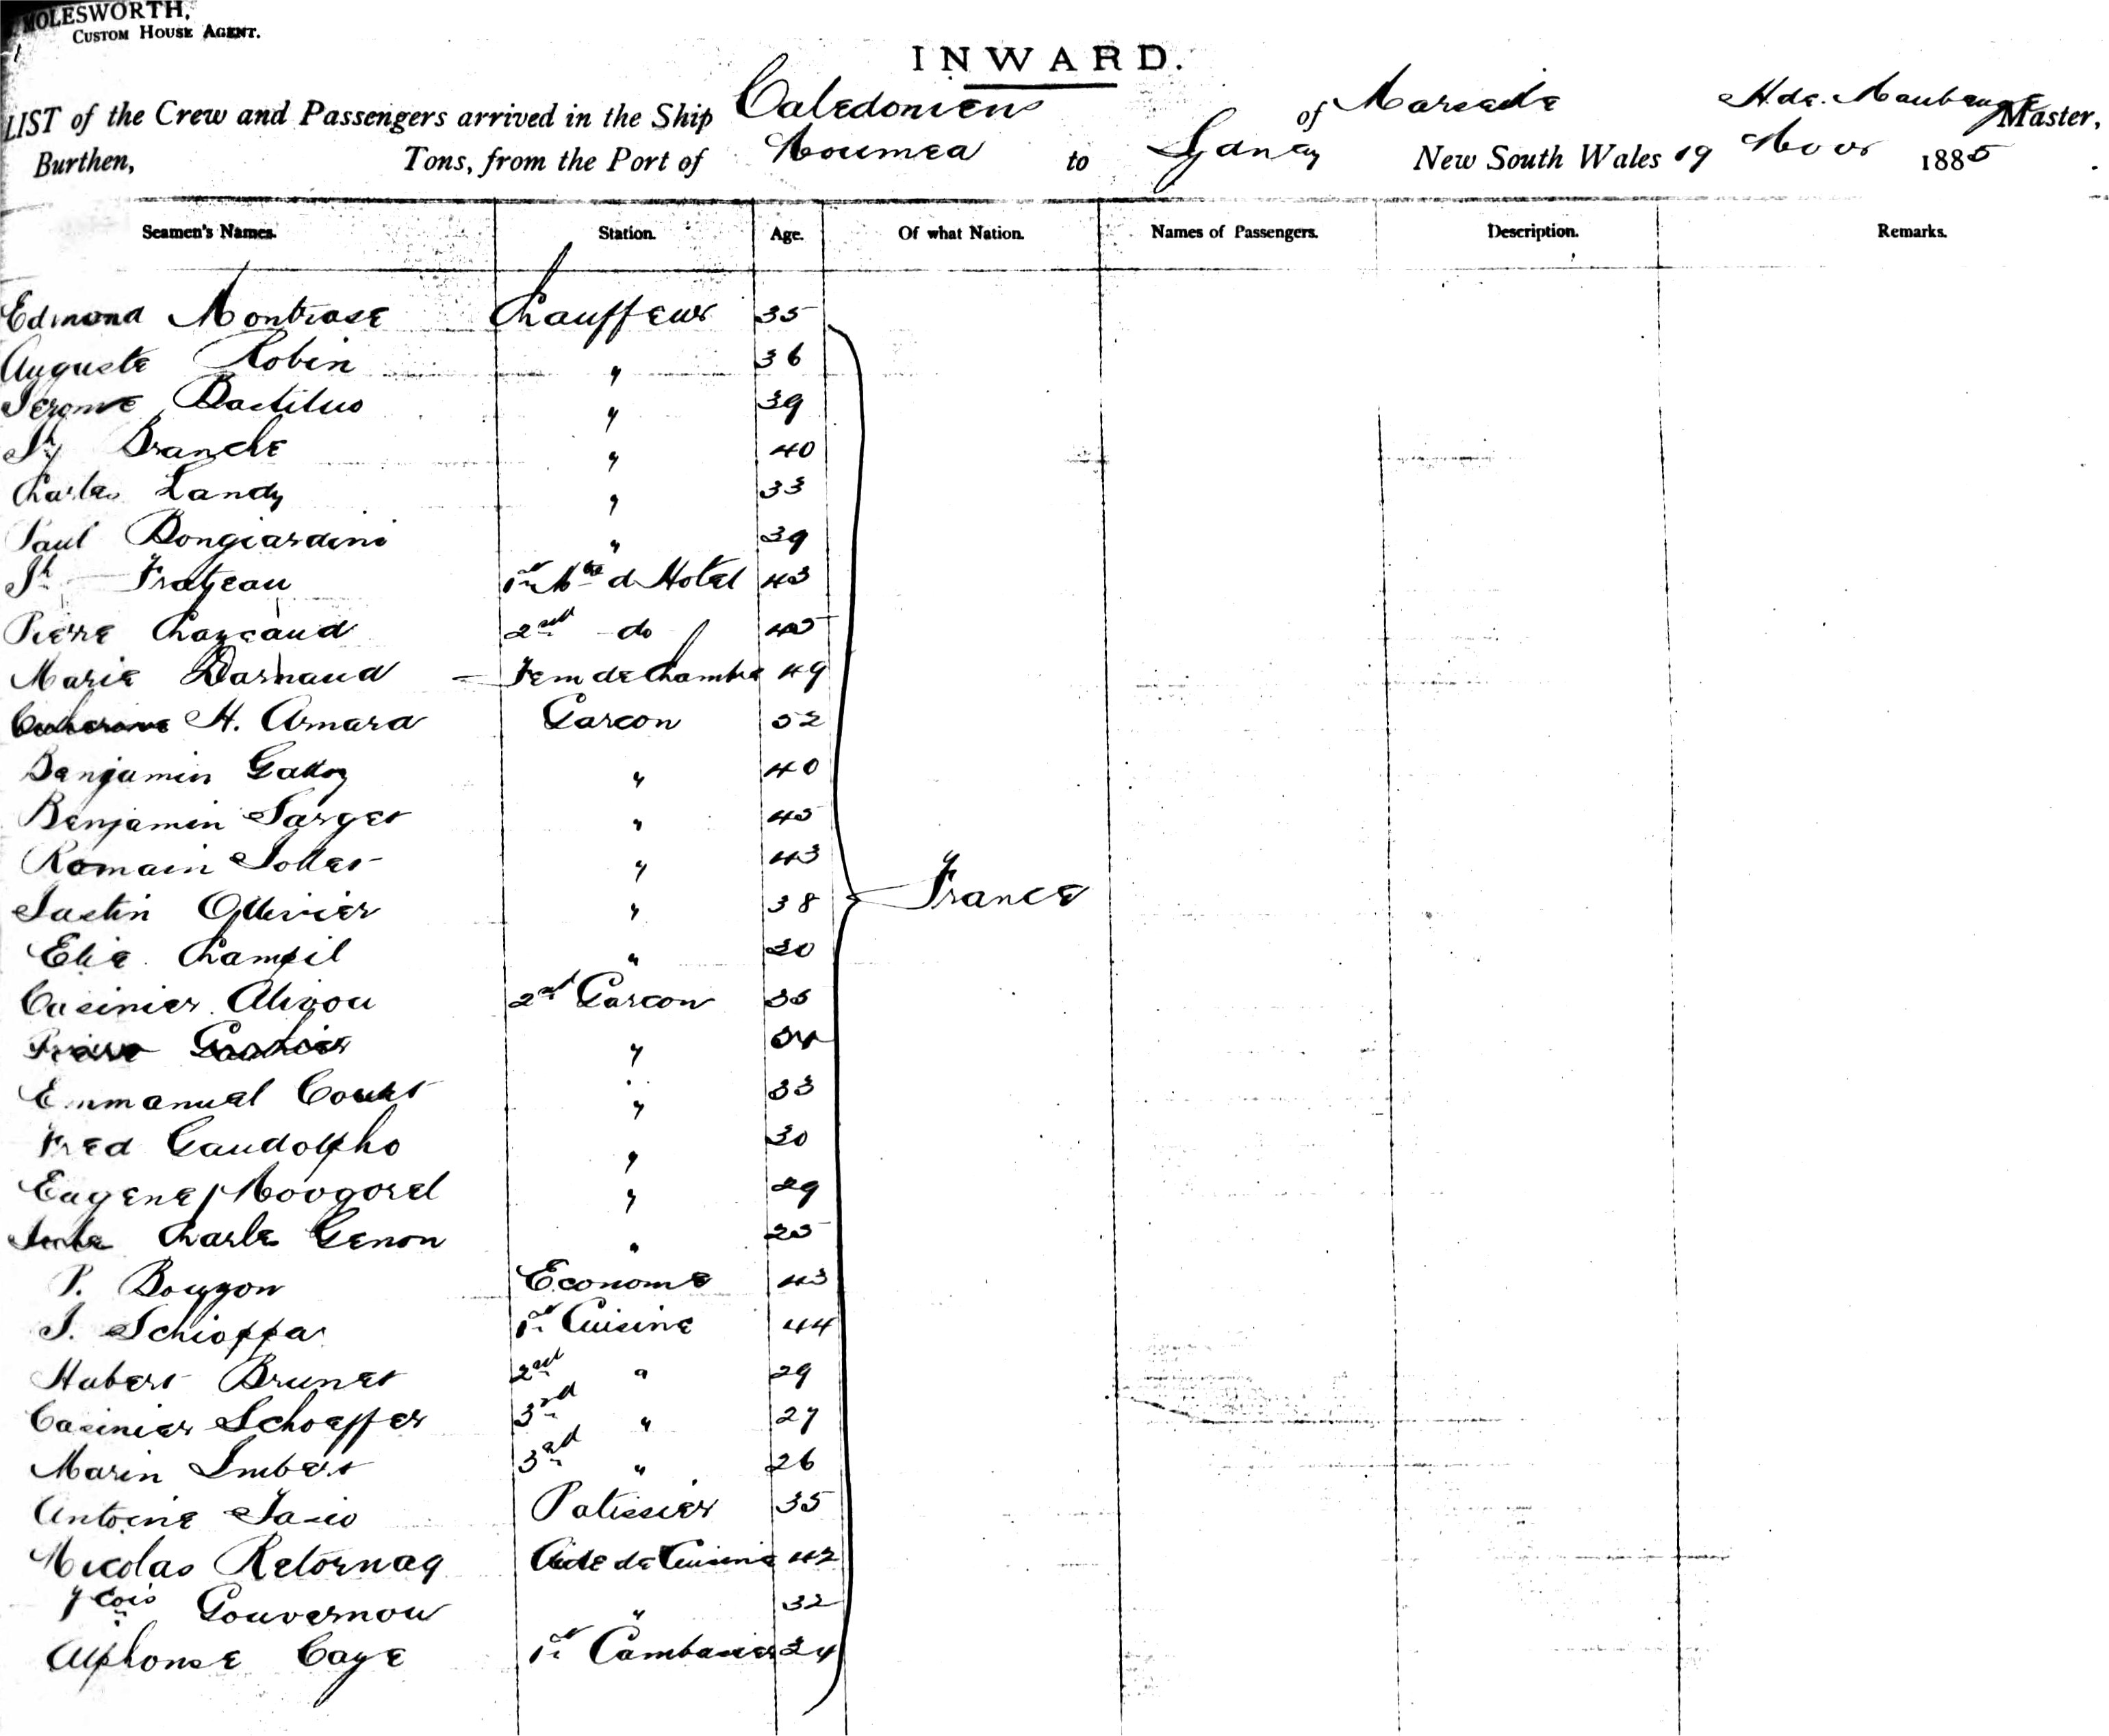 MOLESWORTH,
CUSTOM HOUSE AGENT.
INWARD.
LIST of the Crew and Passengers arrived in the Ship Caledonien of Marseille H. de. Maubeuge Master,
Burthen, Tons, from the Port of Noumea to Sydney New South Wales 19 Novr 1885
Seamen's Names. Station. Age. Of what Nation. Names of Passengers. Description. Remarks.
Edmond Montrose Chauffeur 35
Auguste Robin " 36
Jerome " 39
Jh Branche " 40
Charles Landy " 33
Paul Bongiardini " 39
Jh 1er Mtre d Hotel 43
Pierre Chazeaud 2nd do 45
Marie Darnaud Fem de Chambre 49
H. Amara Garcon 52
Benjamin " 40
Benjamin Sarget " 45
Romain " 43
Justin Ollivier " 38
France
Elie Champil " 30
Casimier 2nd Garcon 35
" 34
Emmanuel " 33
Fred Gaudolpho " 30
Eugene Novgorel " 29
Charles Genon " 25
P. Bouygon Econome 43
J. Schioppa 1er Cuisine 44
Hubert Brunet 2nd " 29
Casimier Schoeffer 3rd " 27
Marin Imbert 3rd " 26
Antoine Patissier 35
Nicolas Retornaq Aide de Cuisine 42
Fcois Gouvernou " 32
Alphonse Caye 1er Cambusier 24